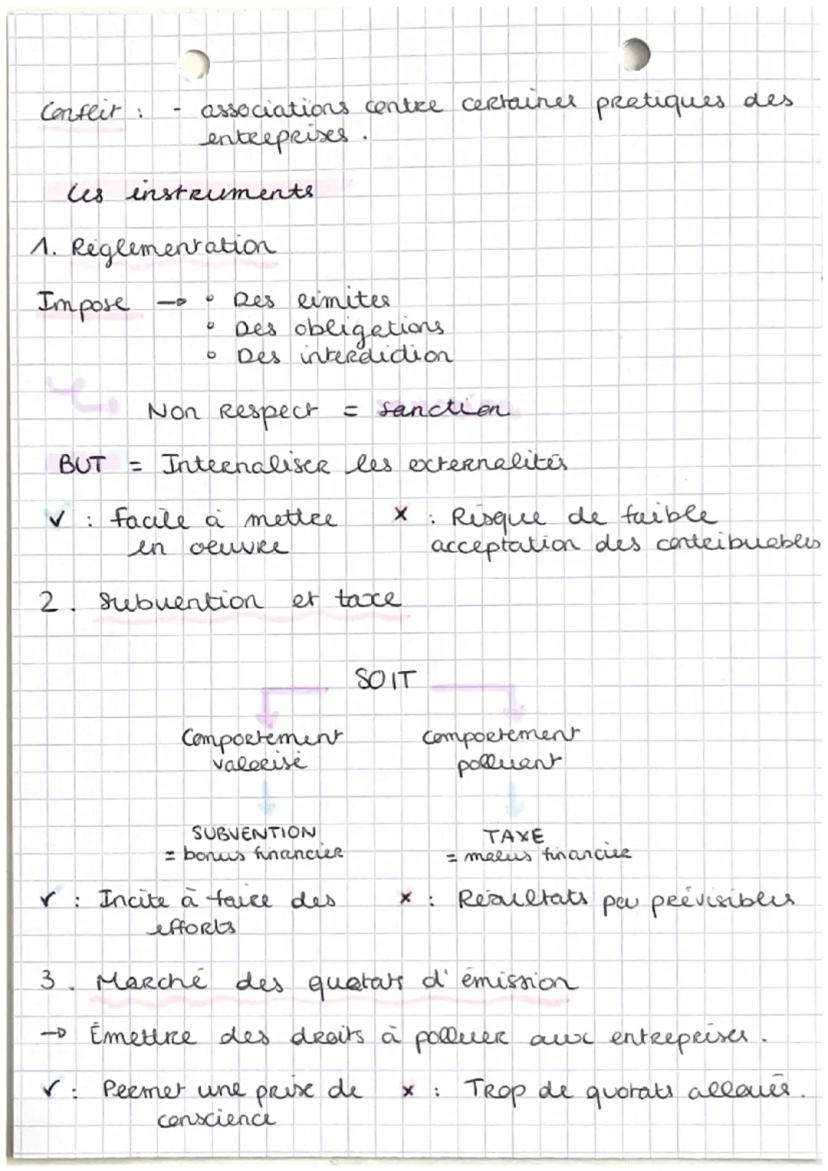 Conflit : - associations contre certaines pratiques des
entreprises.
Les instruments
1. Réglementation
Impose → • Des limites
• Des obligations
• Des interdidion
Non Respect = sanction
BUT = Internaliser les externalités
✓ : facile à mettre
en oeuvre
× : Risque de faible
acceptation des contribuables
2. Subvention et taxe
SOIT
Comportement
valorisé
comportement
polluant
SUBVENTION
= bonus financier
TAXE
= malus financier
✓ : Incite à faire des
efforts
× : Résultats peu prévisibles
3. Marché des quotats d'émission
→ Émettre des droits à polluer aux entreprises.
✓ : Permet une prise de
conscience
× : Trop de quotats alloués.